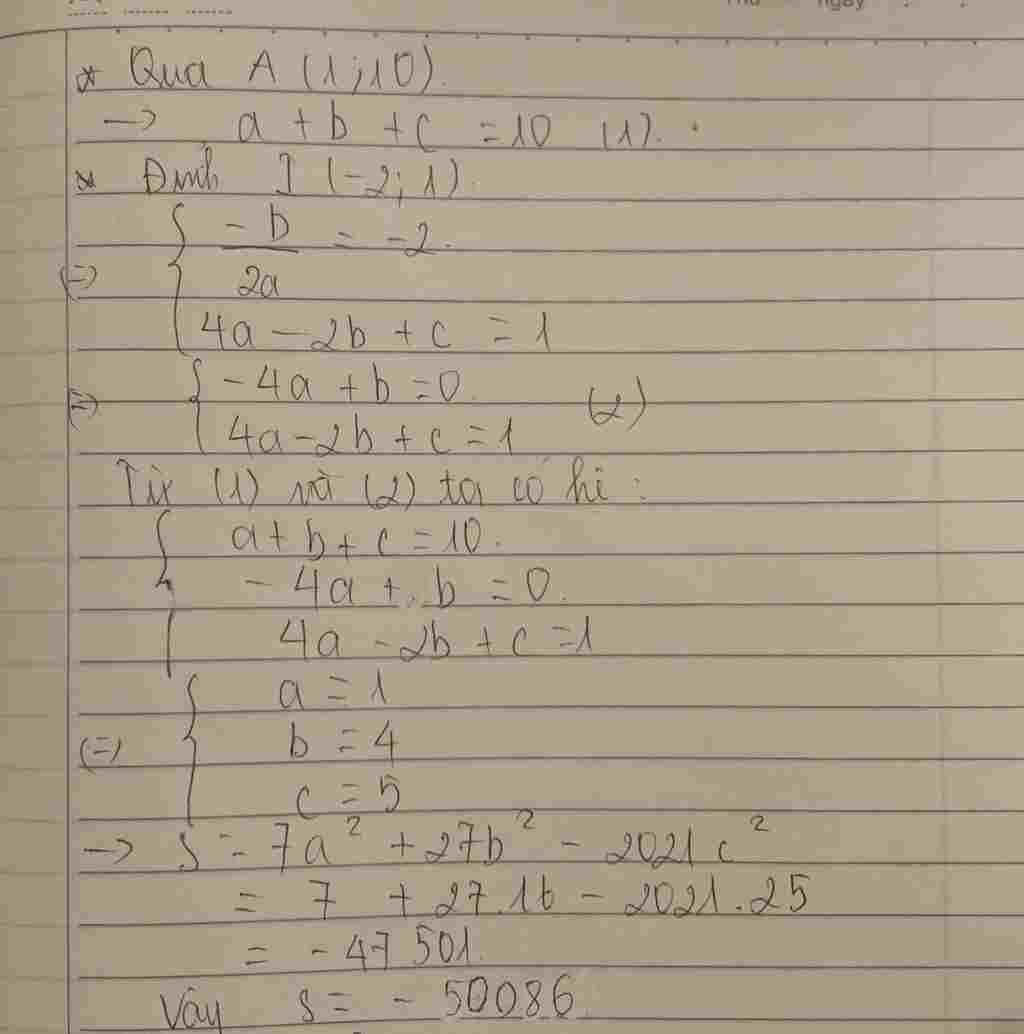 * Qua A (1;10).
→ a + b + c = 10 (1).
* Đỉnh I (-2;1).
(=) { -b/2a = -2.
4a - 2b + c = 1
(=) { -4a + b = 0.
4a - 2b + c = 1 (2)
Từ (1) và (2) ta có hệ :
{ a + b + c = 10.
- 4a + b = 0.
4a - 2b + c = 1
(=) { a = 1
b = 4
c = 5
→ S = 7a² + 27b² - 2021c²
= 7 + 27.16 - 2021.25
= - 47 501.
Vậy S = - 50086